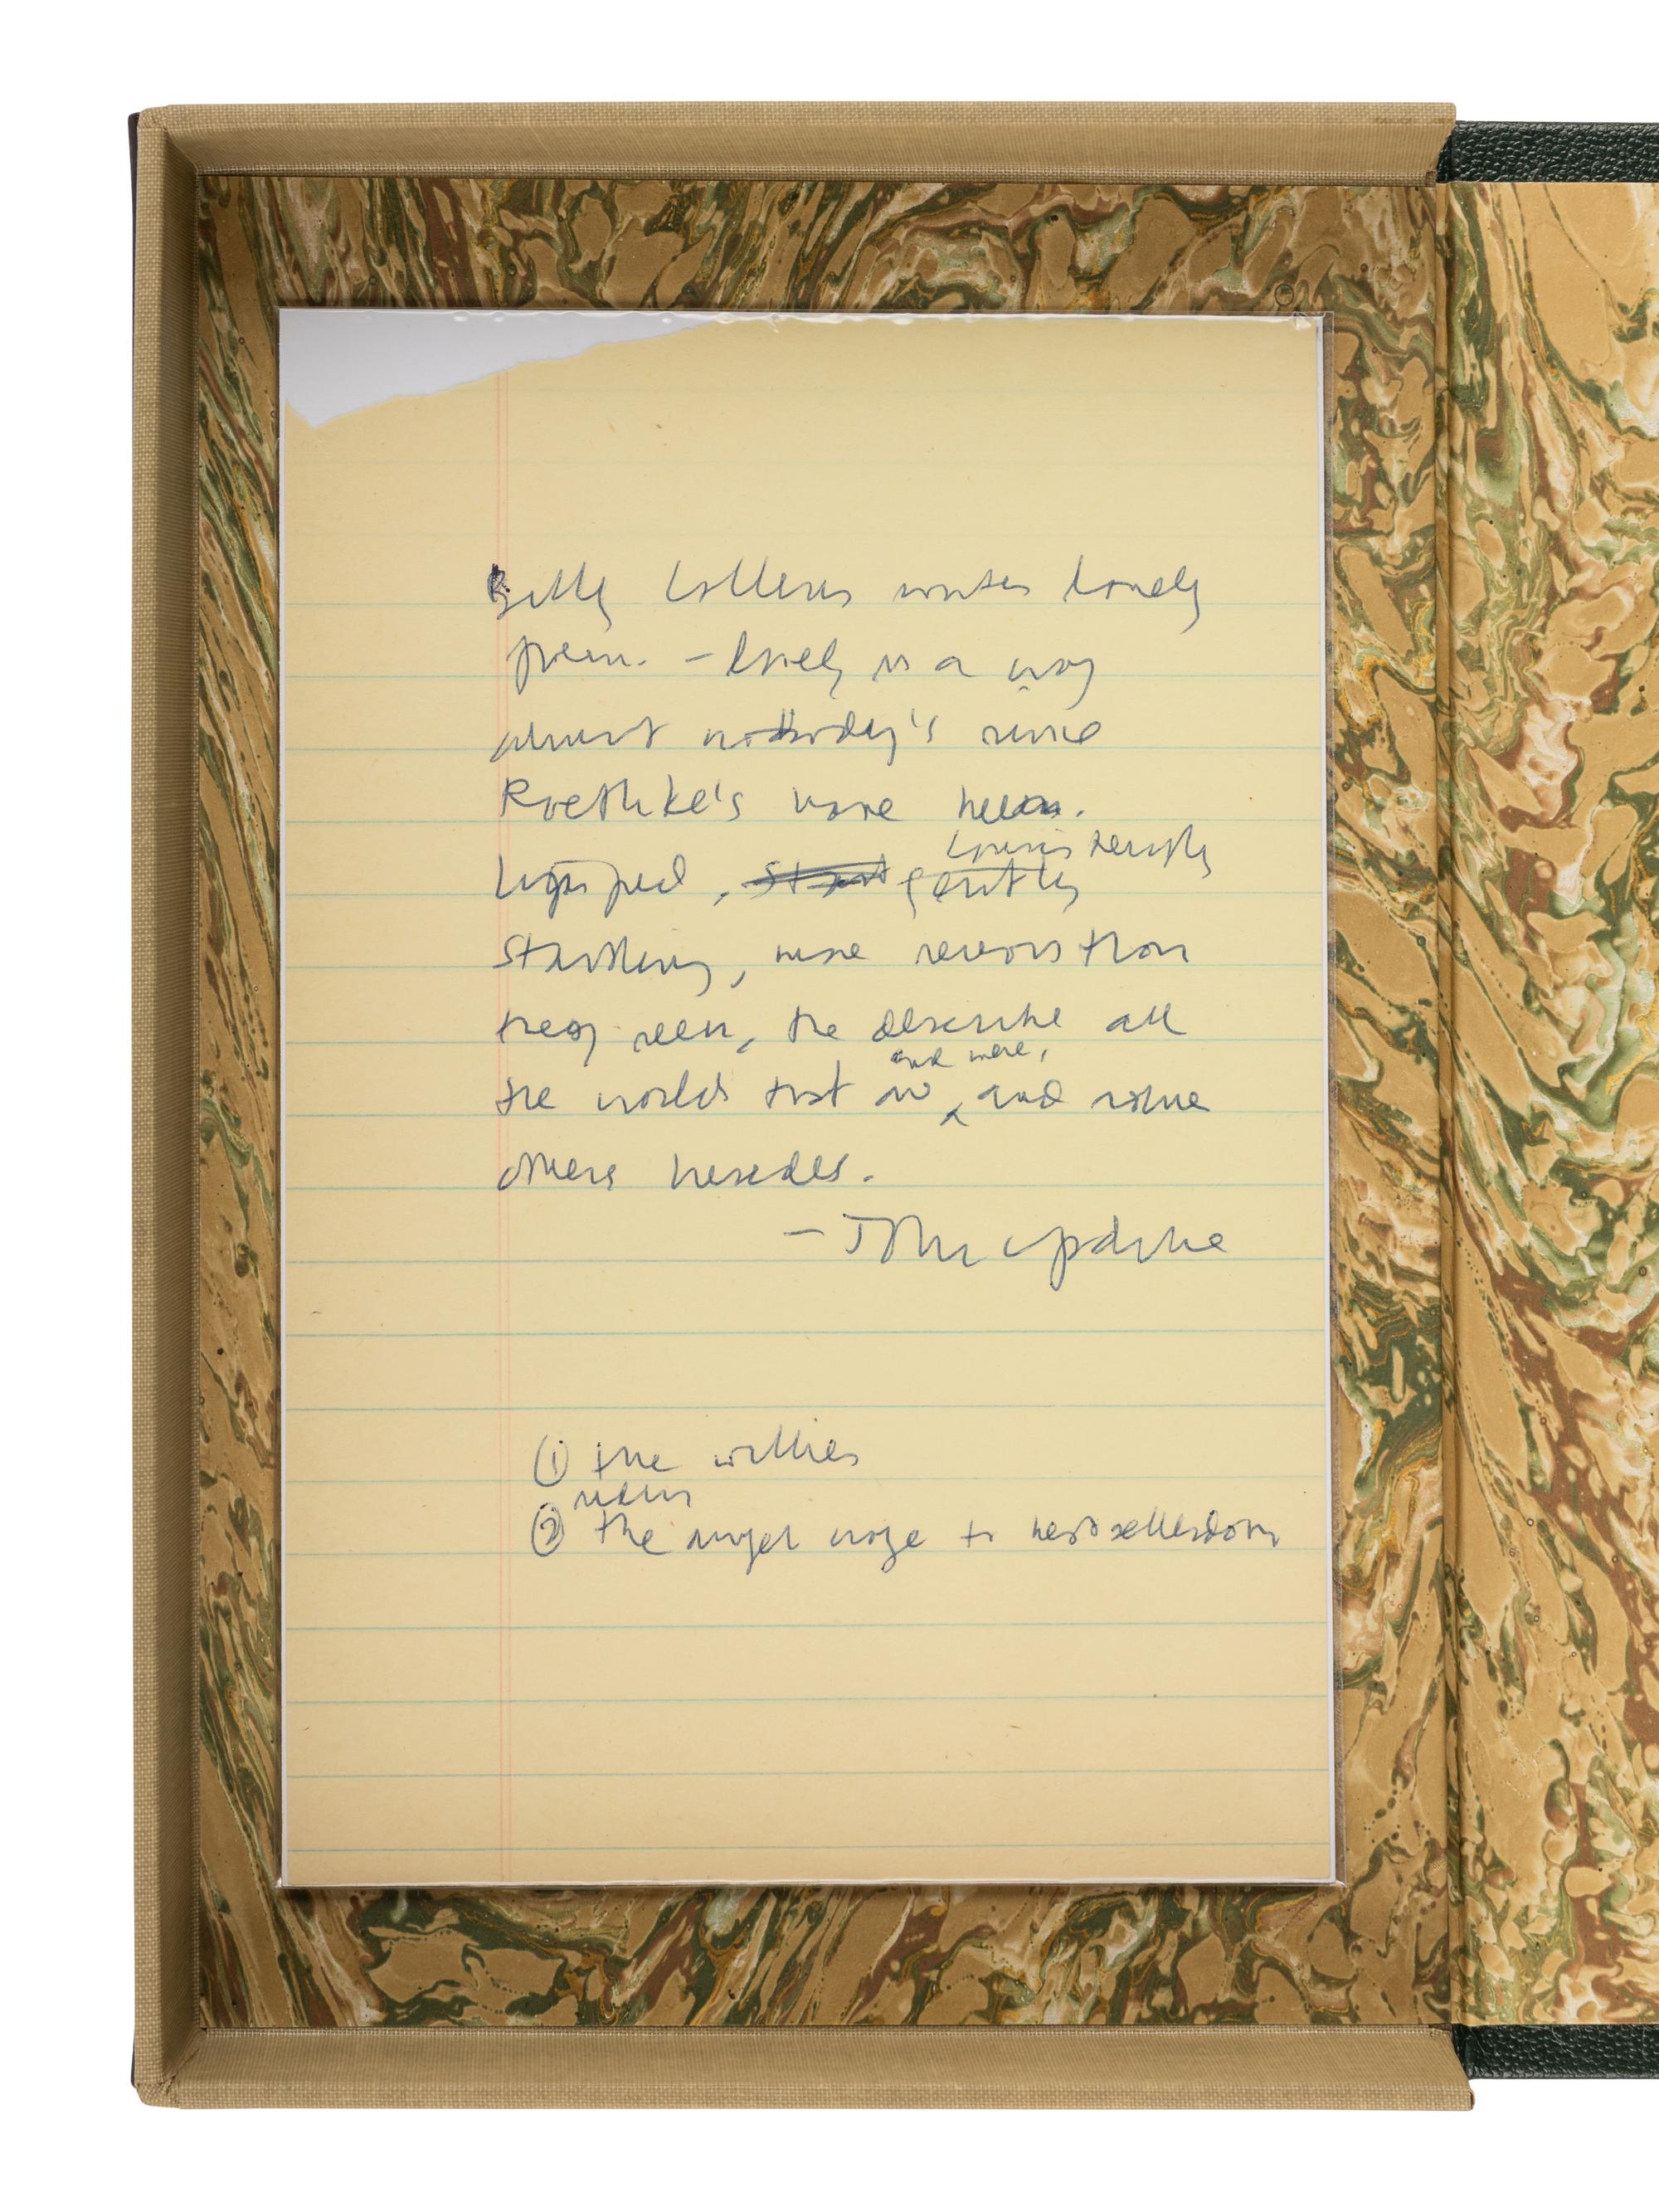 Billy Collins writes lovely
poems – lovely in a way
almost nobody's since
Roethke's have been.
consistently
Limpid, gently
startling, more serious than
they seem, they describe all
and were,
the worlds that are and some
others besides.
– John Updike
① the willies
② the angel urge to bestsellerdom